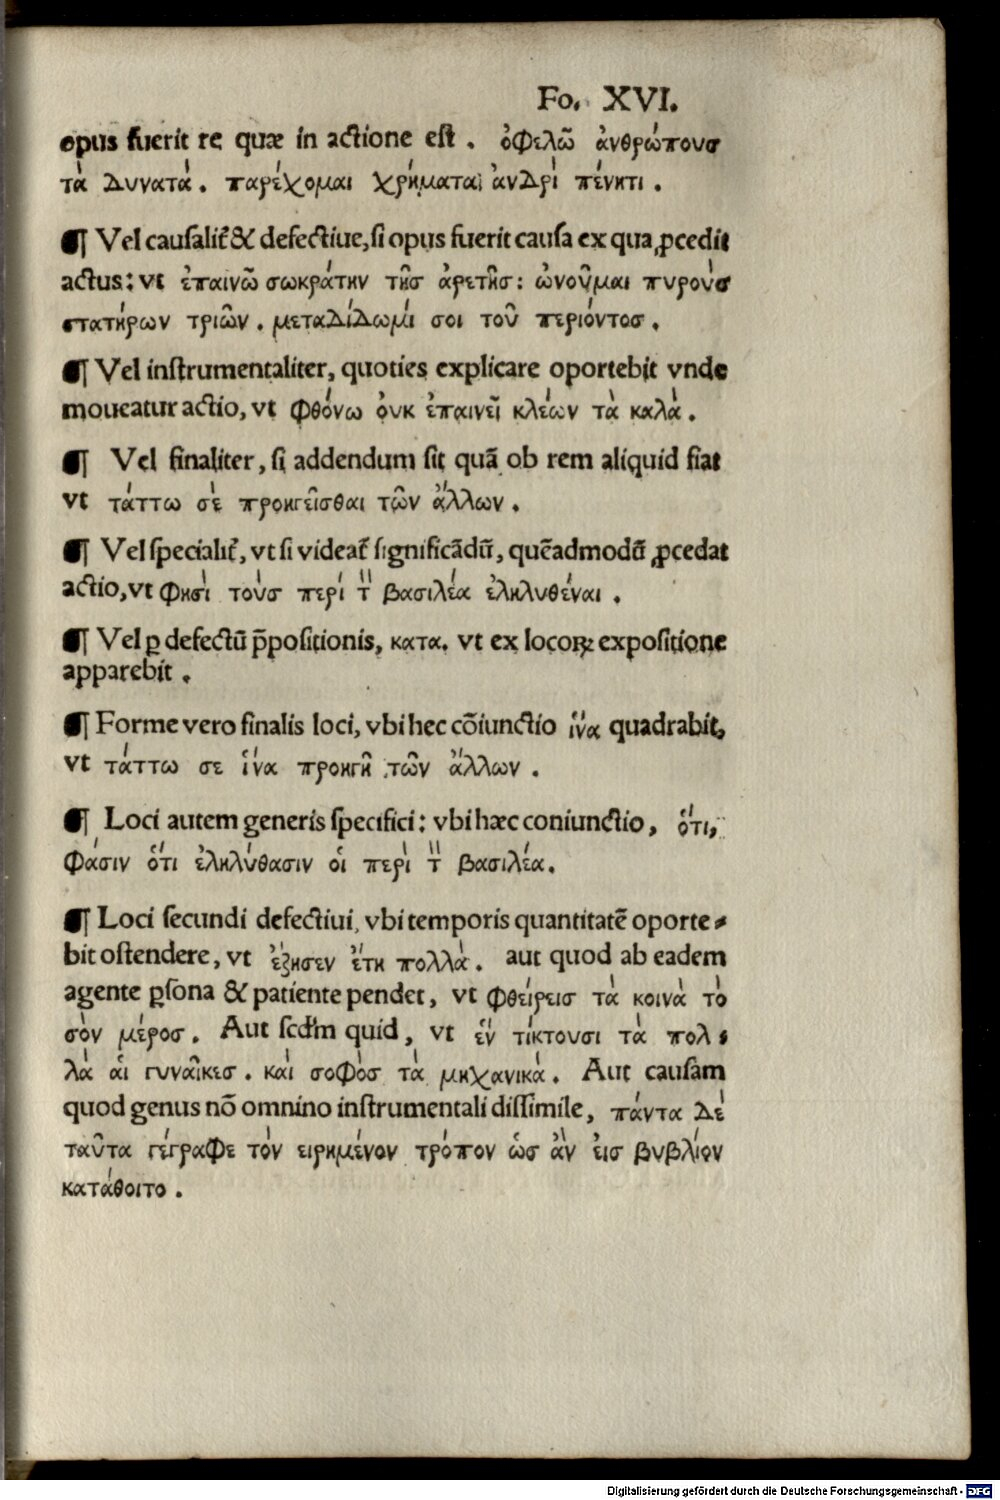 Fo. XVI.
opus fuerit re quæ in actione est. ὀφελῶ ἀνθρώπουσ
τὰ Δυνατά. παρέχομαι χρήματα ἀνΔρὶ πένητι.
¶ Vel causalit̃ & defectiue, si opus fuerit causa ex qua ꝓcedit
actus: vt ἐπαινῶ σωκράτην τῆσ ἀρετῆσ: ὠνοῦμαι πυροὺσ
στατήρων τριῶν. μεταΔίΔωμί σοι τοῦ περιόντοσ.
¶ Vel instrumentaliter, quoties explicare oportebit vnde
moueatur actio, vt φθόνω ὀυκ ἐπαινεῖ κλέων τὰ καλὰ.
¶ Vel finaliter, si addendum sit quã ob rem aliquid fiat
vt τάττω σὲ προηγεῖσθαι τῶν ἄλλων.
¶ Vel specialit̃, vt si videat̃ significãdũ, quẽadmodũ ꝓcedat
actio, vt φησὶ τοὺσ περὶ τ̏ βασιλέα ἐληλυθέναι.
¶ Vel ꝑ defectũ p̃positionis, κατα. vt ex locoꝝ expositione
apparebit.
¶ Forme vero finalis loci, vbi hec cõiunctio ἵνα quadrabit,
vt τάττω σε ἵνα προηγῆ τῶν ἄλλων.
¶ Loci autem generis specifici: vbi hæc coniunctio, ὅτι,
φάσιν ὅτι ἐληλύθασιν οἱ περὶ τ̏ βασιλέα.
¶ Loci secundi defectiui, vbi temporis quantitatẽ oporte⸗
bit ostendere, vt ἔζησεν ἔτη πολλὰ. aut quod ab eadem
agente ꝑsona & patiente pendet, vt φθείρεισ τὰ κοινὰ τὸ
σὸν μέροσ. Aut scd'm quid, vt ἓν τίκτουσι τὰ πολ⸗
λὰ ἁι γυναῖκεσ. κάι σοφὸσ τὰ μηχανικὰ. Aut causam
quod genus nõ omnino instrumentali dissimile, πάντα Δὲ
ταῦτα γέγραφε τὸν ειρημένον τρόπον ὡσ ἂν ἐισ βυβλίον
κατάθοιτο.
Digitalisierung gefördert durch die Deutsche Forschungsgemeinschaft - DFG